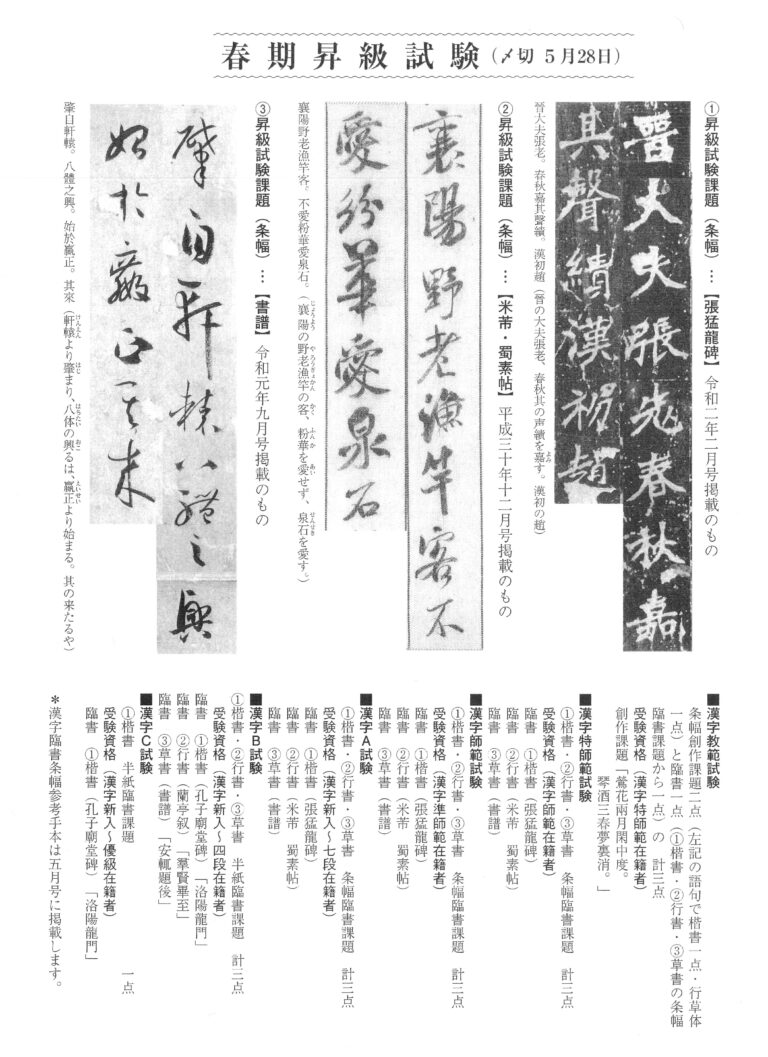 春期昇級試験（〆切 5月28日）
①昇級試験課題（条幅）…【張猛龍碑】令和二年二月号掲載のもの
晉大夫張老春秋嘉
其聲績漢初趙
晉大夫張老。春秋嘉其聲績。漢初趙（晉の大夫張老、春秋其の声績を嘉す。漢初の趙）
よみ
②昇級試験課題（条幅）…【米芾・蜀素帖】平成三十年十二月号掲載のもの
襄陽野老漁竿客不
愛紛華愛泉石
襄陽野老漁竿客。不愛粉華愛泉石。（襄陽の野老漁竿の客、粉華を愛せず、泉石を愛す。）
じょうよう やろうぎょかん かく ふんか あい せんせき
③昇級試験課題（条幅）…【書譜】令和元年九月号掲載のもの
肇自軒轅八體之興
始於嬴正其來
肇自軒轅。八體之興。始於嬴正。其來（軒轅より肇まり、八体の興るは、嬴正より始まる。其の来たるや）
けんえん はじ はちたい おこ えいせい
■漢字教範試験
条幅創作課題二点（左記の語句で楷書一点・行草体
一点）と臨書一点（①楷書・②行書・③草書の条幅
臨書課題から一点）の 計三点
受験資格（漢字特師範在籍者）
創作課題「鶯花兩月閑中度。
琴酒三春夢裏消。」
■漢字特師範試験
①楷書・②行書・③草書 条幅臨書課題 計三点
受験資格（漢字師範在籍者）
臨書 ①楷書（張猛龍碑）
臨書 ②行書（米芾 蜀素帖）
臨書 ③草書（書譜）
■漢字師範試験
①楷書・②行書・③草書 条幅臨書課題 計三点
受験資格（漢字準師範在籍者）
臨書 ①楷書（張猛龍碑）
臨書 ②行書（米芾 蜀素帖）
臨書 ③草書（書譜）
■漢字A試験
①楷書・②行書・③草書 条幅臨書課題 計三点
受験資格（漢字新入〜七段在籍者）
臨書 ①楷書（張猛龍碑）
臨書 ②行書（米芾 蜀素帖）
臨書 ③草書（書譜）
■漢字B試験
①楷書・②行書・③草書 半紙臨書課題 計三点
受験資格（漢字新入〜四段在籍者）
臨書 ①楷書（孔子廟堂碑）「洛陽龍門」
臨書 ②行書（蘭亭叙）「羣賢畢至」
臨書 ③草書（書譜）「安輒題後」
■漢字C試験
①楷書 半紙臨書課題 一点
受験資格（漢字新入〜優級在籍者）
臨書 ①楷書（孔子廟堂碑）「洛陽龍門」
＊漢字臨書条幅参考手本は五月号に掲載します。